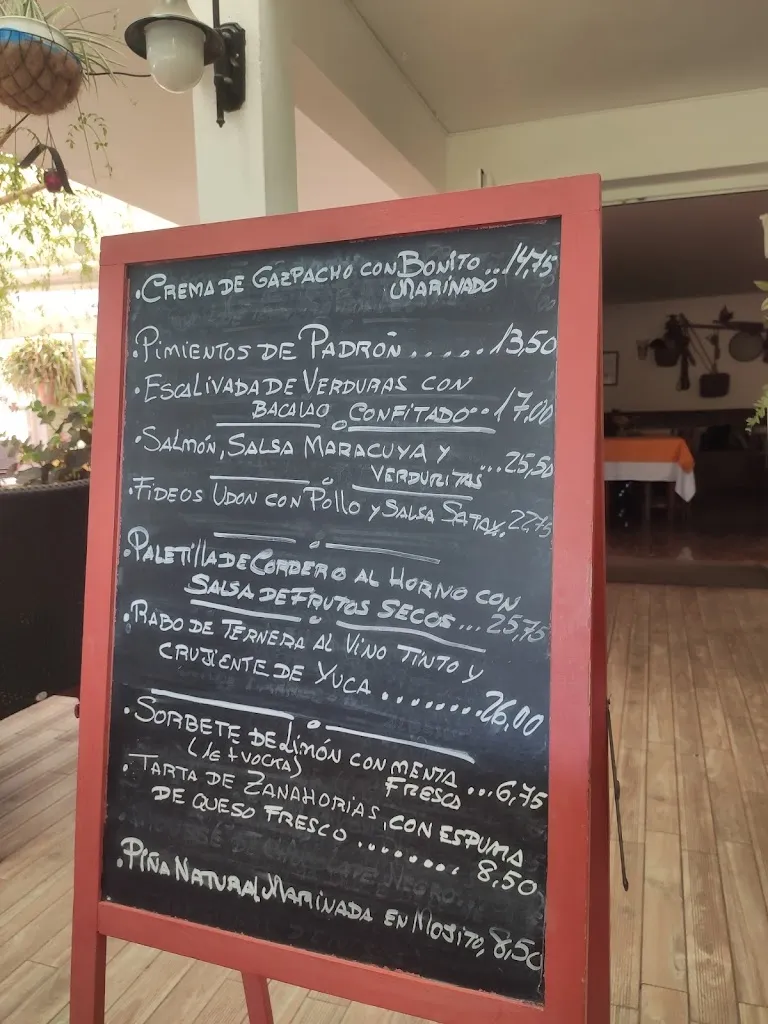 .CREMA DE GAZPACHO CON BONITO ...14,75
MARINADO
.PIMIENTOS DE PADRÓN ......13,50
.ESCALIVADA DE VERDURAS CON
BACALAO CONFITADO..17,00
.SALMÓN, SALSA MARACUYA Y
VERDURITAS ...25,50
.FIDEOS UDON CON POLLO Y SALSA SATAY. 22,75
.PALETILLA DE CORDERO AL HORNO CON
SALSA DE FRUTOS SECOS ... 25,75
.RABO DE TERNERA AL VINO TINTO Y
CRUJIENTE DE YUCA ........26,00
.SORBETE DE LIMÓN CON MENTA
FRESCA ...6,75
(1€ + VOCKA)
.TARTA DE ZANAHORIAS, CON ESPUMA
DE QUESO FRESCO ........ 8,50
.PIÑA NATURAL MARINADA EN MOJITO, 8,50